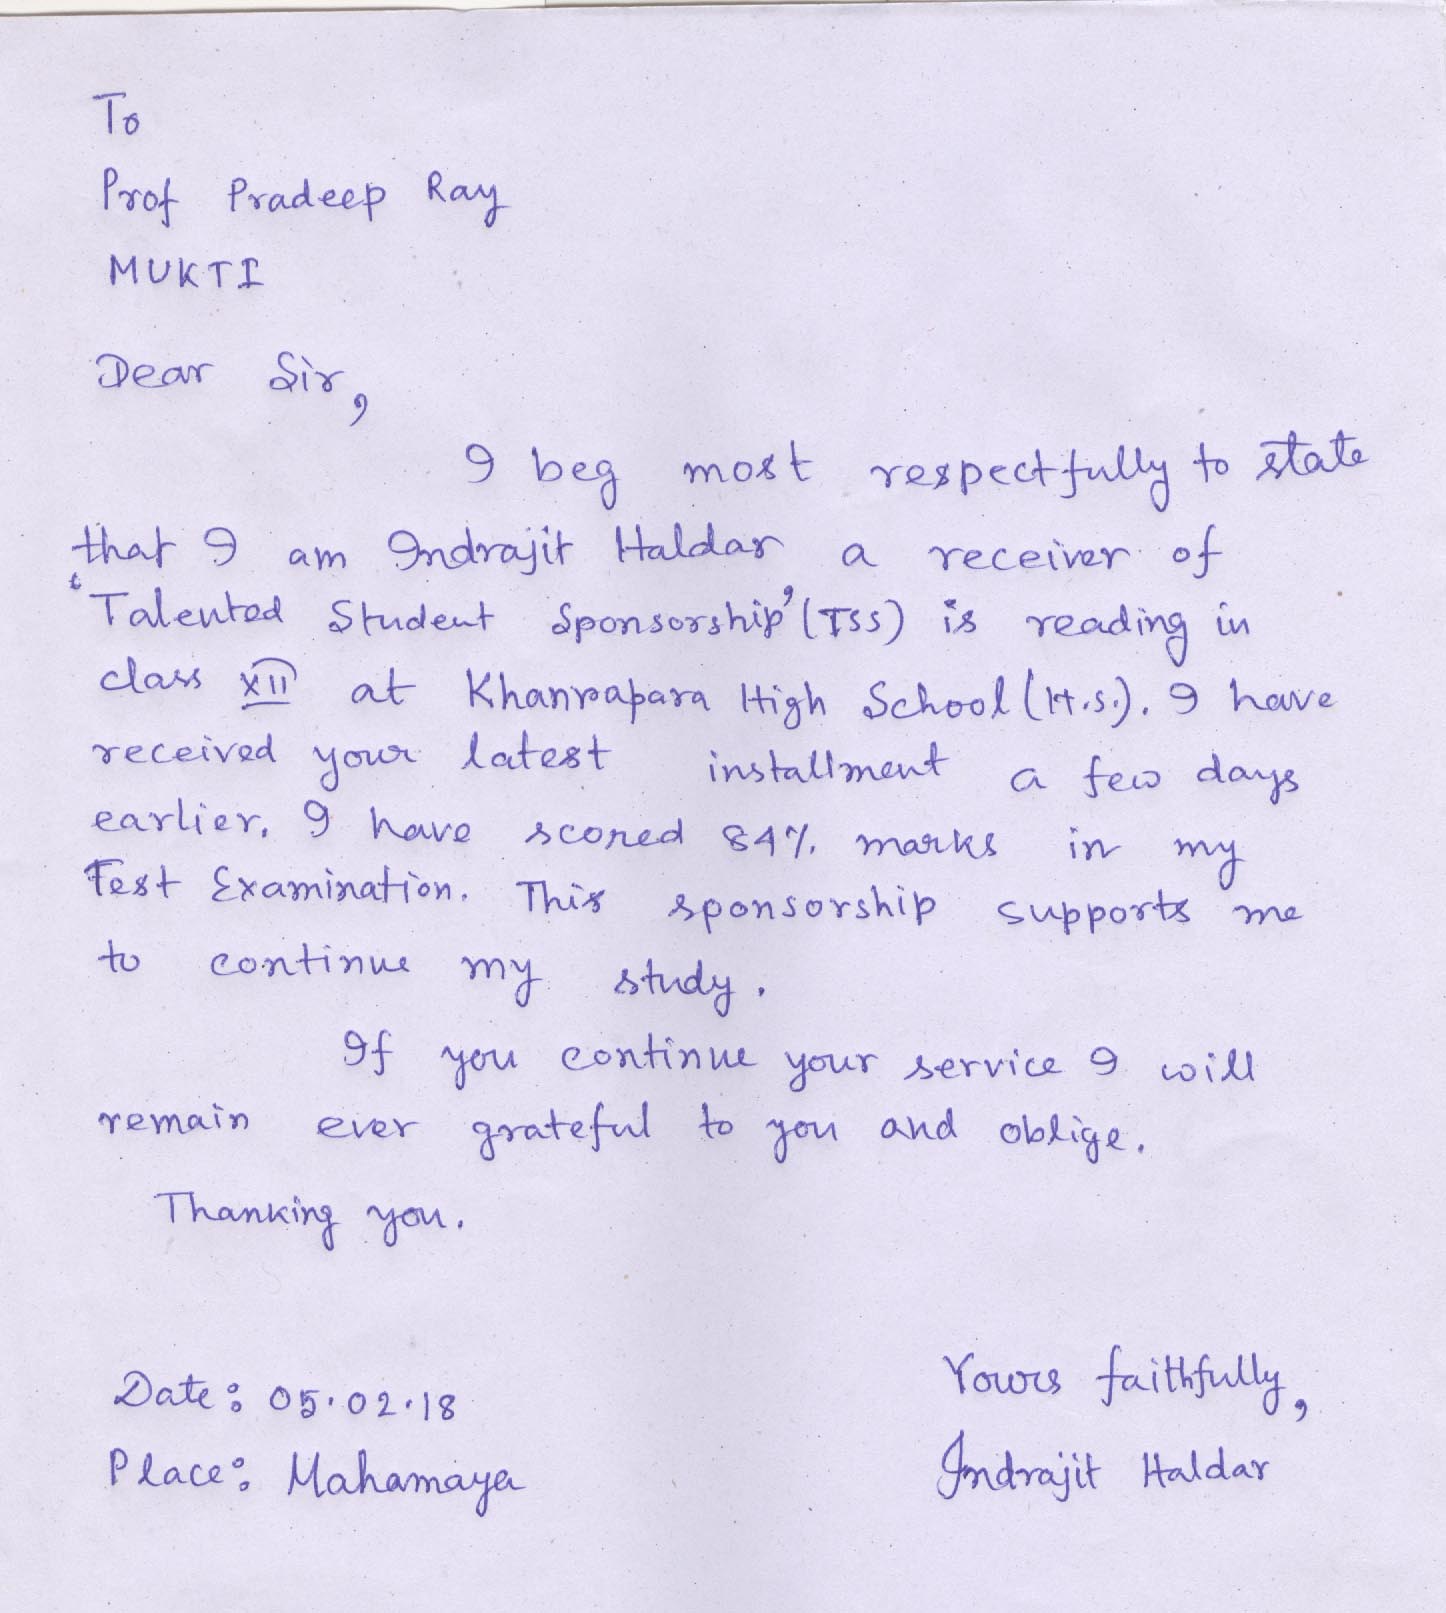 To
Prof Pradeep Ray
MUKTI
Dear Sir,
I beg most respectfully to state
that I am Indrajit Haldar a receiver of
'Talented Student Sponsorship' (TSS) is reading in
class XII at Khanrapara High School (H.S.). I have
received your latest installment a few days
earlier. I have scored 84% marks in my
Test Examination. This sponsorship supports me
to continue my study.
If you continue your service I will
remain ever grateful to you and oblige.
Thanking you.
Date: 05.02.18
Place: Mahamaya
Yours faithfully,
Indrajit Haldar